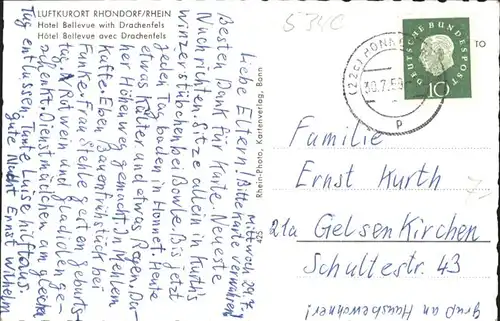 LUFTKURORT RHÖNDORF/RHEIN
Hotel Bellevue with Drachenfels
Hôtel Bellevue avec Drachenfels
Mittwoch 29.7.
Liebe Eltern! (Bitte Karte verwahren)
Besten Dank für Karte. Neueste
Nachrichten. Sitze allein in Kurth's
Winzerstübchen bei Bowle. Bis jetzt
jeden Tag baden in Honnef. Heute
etwas kälter und etwas Regen. Da-
her Höhenweg gemacht. In Mehlem
Kaffe. Eben Bauernfrühstück bei
Funke. Frau Stehle gestern Geburts-
tag. Rotwein und Gladiolen ge-
schenkt. Dienstmädchen am gleichen
Tag entlassen. Tante Luise hilflos.
gute Nacht Ernst Wilhelm
425
Rhein-Photo, Kartenverlag, Bonn
S 54C
(22c) HONNEF
30.7.59
p
DEUTSCHE BUNDESPOST
10
TO
Familie
Ernst Kurth
21a Gelsenkirchen
Schultestr. 43
7.-
Gruß an Hausbewohner!